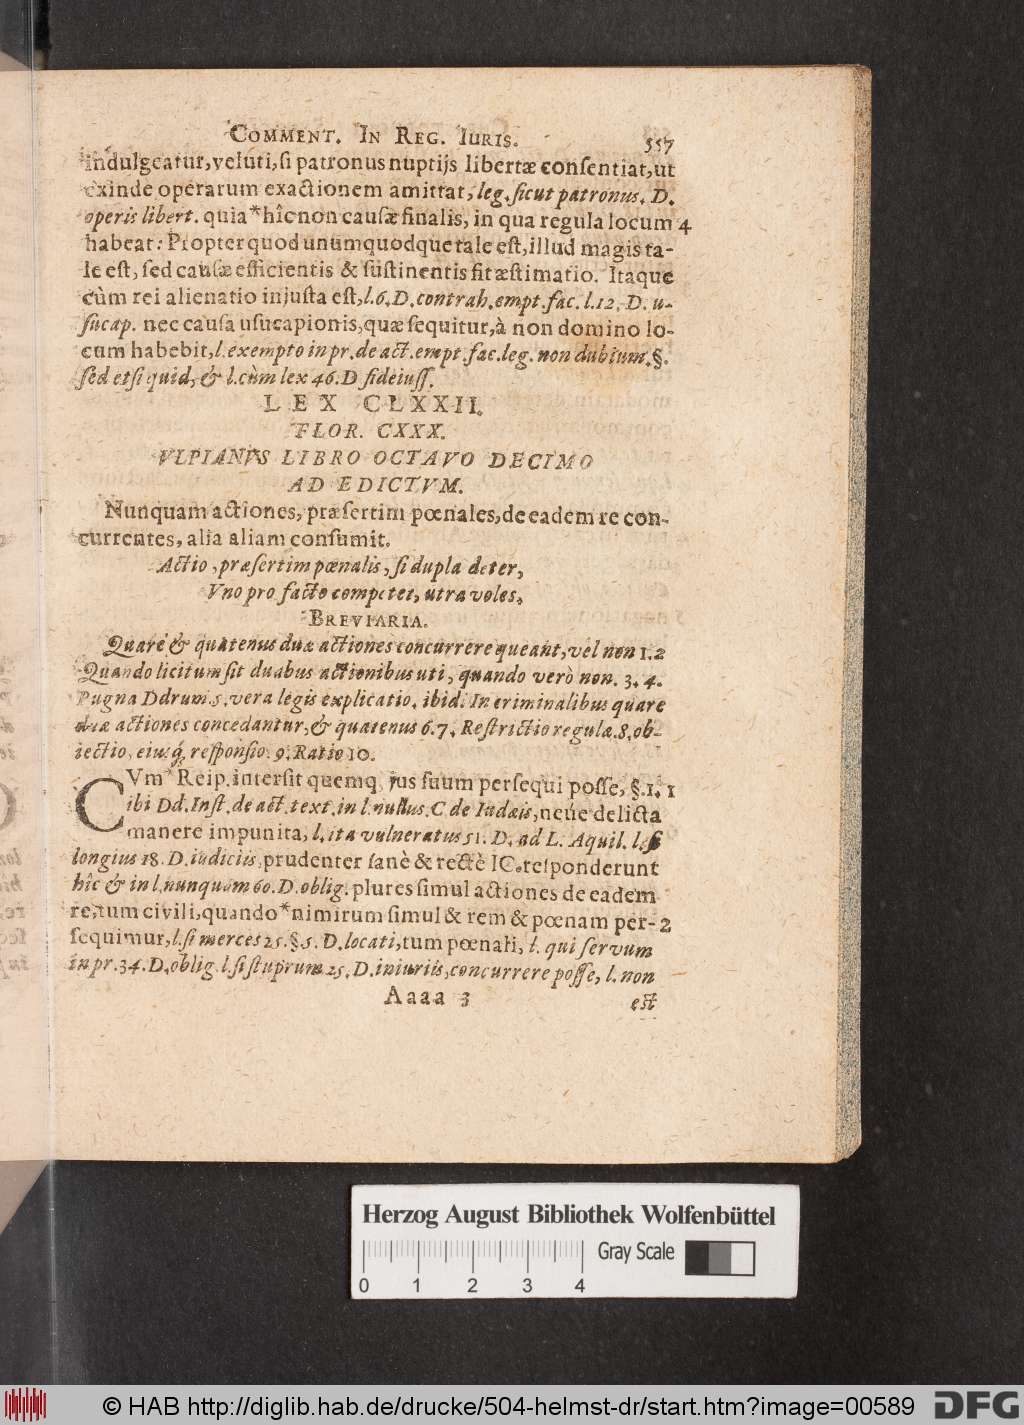 COMMENT. IN REG. IURIS. 557
indulgeatur, veluti, si patronus nuptijs libertæ consentiat, ut
exinde operarum exactionem amittat, leg. sicut patronus. D.
operis libert. quia * hîc non causæ finalis, in qua regula locum 4
habeat: Propter quod unumquodque tale est, illud magis ta-
le est, sed causæ efficientis & sustinentis fit æstimatio. Itaque
cùm rei alienatio injusta est, l. 6. D. contrah. empt. fac. l. 12. D. u-
sucap. nec causa usucapionis, quæ sequitur, à non domino lo-
cum habebit, l. exempto in pr. de act. empt. fac. leg. non dubium. §.
sed etsi quid, & l. cùm lex 46. D fideiuss.
LEX CLXXII.
FLOR. CXXX.
VLPIANVS LIBRO OCTAVO DECIMO
AD EDICTVM.
Nunquam actiones, præsertim pœnales, de eadem re con-
currentes, alia aliam consumit.
Actio, præsertim pœnalis, si dupla detur,
Vno pro facto competet, utra voles.
BREVIARIA.
Quare & quatenus duæ actiones concurrere queant, vel non 1. 2
Quando licitum sit duabus actionibus uti, quando verò non. 3. 4.
Pugna Ddrum. 5. vera legis explicatio. ibid. In criminalibus quare
duæ actiones concedantur, & quatenus 6. 7. Restrictio regulæ. 8. ob-
iectio, eiusq́. responsio. 9. Ratio 10.
CVm * Reip. intersit quemq, jus suum persequi posse, §. 1. 1
ibi Dd. Inst. de act. text. in l. nullus. C de Iudæis, neúe delicta
manere impunita, l. ita vulneratus 51. D. ad L. Aquil. l. si
longius 18. D. iudiciis. prudenter sanè & rectè IC. responderunt
hîc & in l. nunquam 60. D. oblig. plures simul actiones de eadem
re, tum civili, quando * nimirum simul & rem & pœnam per- 2
sequimur, l. si merces 25. §. 5. D. locati, tum pœnali, l. qui servum
in pr. 34. D. oblig. l. si stuprum 25. D. iniuriis, concurrere posse, l. non
Aaaa 3
est
Herzog August Bibliothek Wolfenbüttel
Gray Scale
0 1 2 3 4
© HAB http://diglib.hab.de/drucke/504-helmst-dr/start.htm?image=00589
DFG